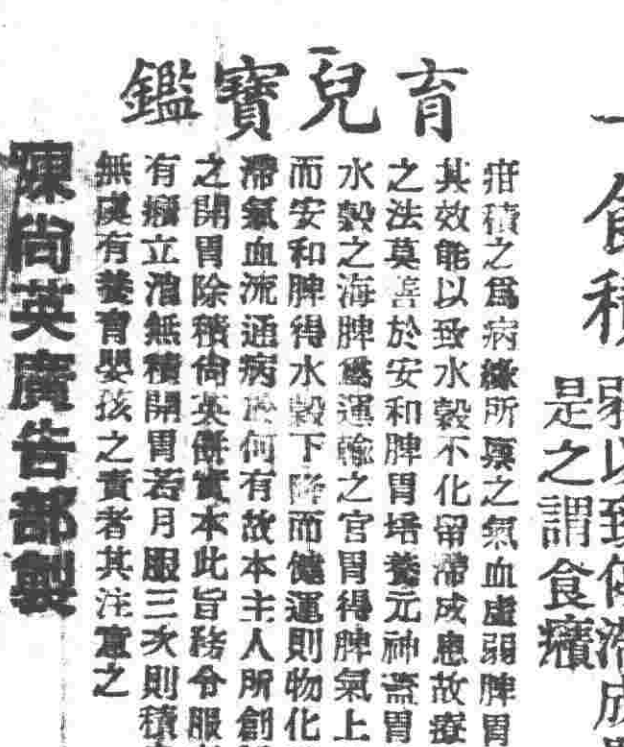 食積
弱以致停滯成
是之謂食癪
育兒寶鑑
疳積之爲病緣所稟之氣血虛弱脾胃
其效能以致水穀不化留滯成患故療
之法莫善於安和脾胃培養元神蓋胃
水穀之海脾爲運輸之官胃得脾氣上
而安和脾得水穀下降而健運則物化
滯氣血流通病於何有故本主人所創
之開胃除積尙英餅實本此旨務令服
有癪立消無積開胃若月服三次則積
無虞有養育嬰孩之責者其注意之
陳尙英廣告部製